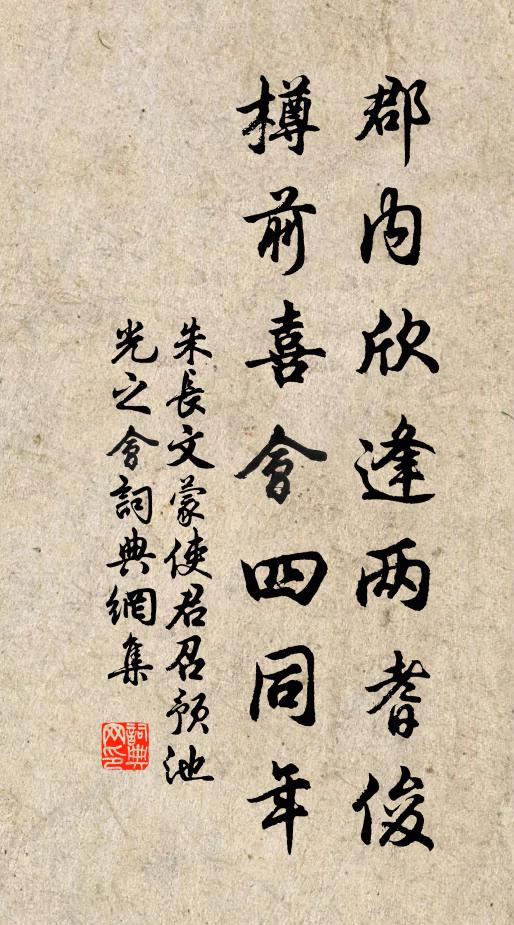 郡内欣逢两耆俊
樽前喜會四同年
朱長文蒙使君召預池
光之會詞典網集
詞典网印